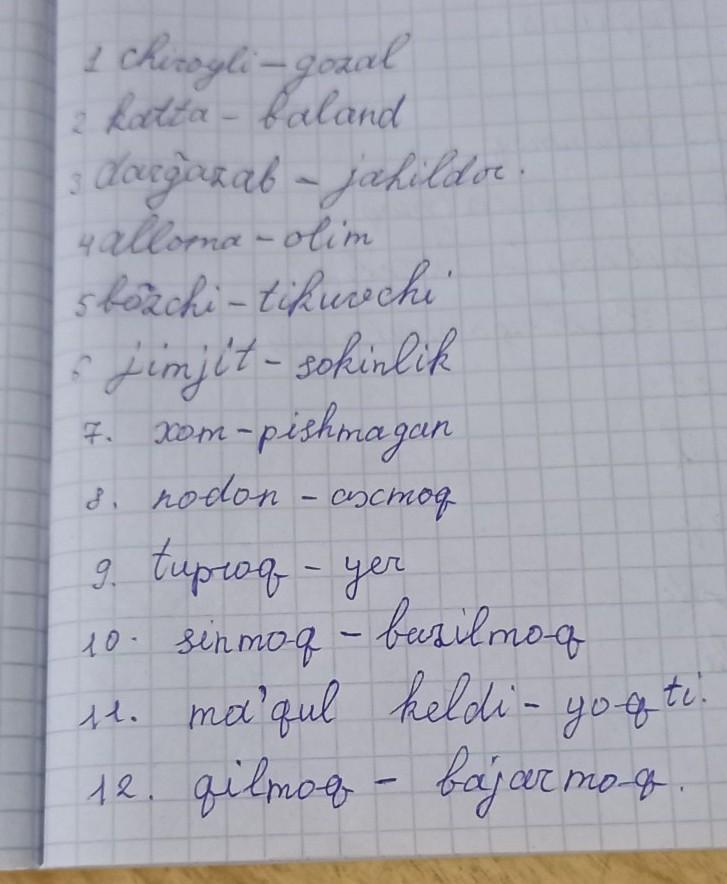 1 chiroyli - gozal
2 katta - baland
3 darğazab - jahildor.
4 alloma - olim
5 bõzchi - tikuvchi
6 jimjit - sokinlik
7. xom - pishmagan
8. nodon - axmoq
9. tuproq - yer
10. sinmoq - buzilmoq
11. ma'qul keldi - yoqti.
12. qilmoq - bajarmoq.